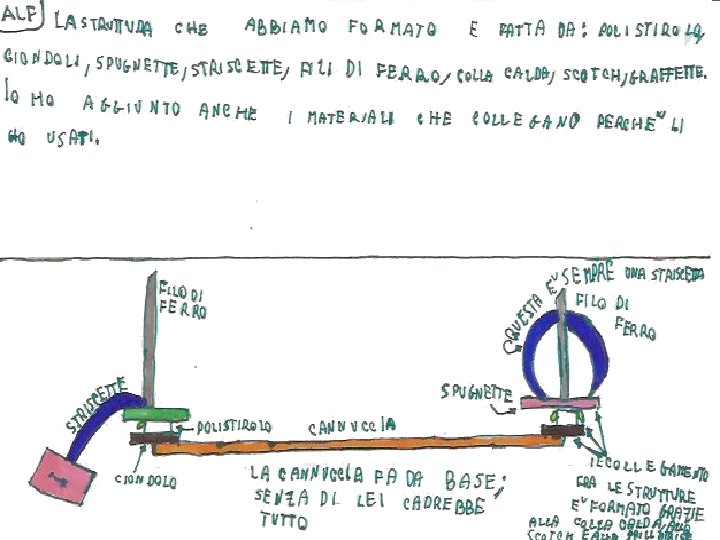 ALF LA STRUTTURA CHE ABBIAMO FORMATO E FATTA DA: POLISTIROLO,
CIONDOLI, SPUGNETTE, STRISCETTE, FILI DI FERRO, COLLA CALDA, SCOTCH, GRAFFETTE.
IO HO AGGIUNTO ANCHE I MATERIALI CHE COLLEGANO PERCHE" LI
HO USATI.
QUESTA E" SEMPRE UNA STRISCETTA
FILO DI
FERRO
FILO DI
FERRO
STRISCETTE
SPUGNETTE
POLISTIROLO
CANNUCCIA
CIONDOLO
LA CANNUCCIA FA DA BASE;
SENZA DI LEI CADREBBE
TUTTO
COLLEGAMENTO
FRA LE STRUTTURE
E" FORMATO GRAZIE
ALLA COLLA CALDA, ALLO
SCOTCH E ALLA